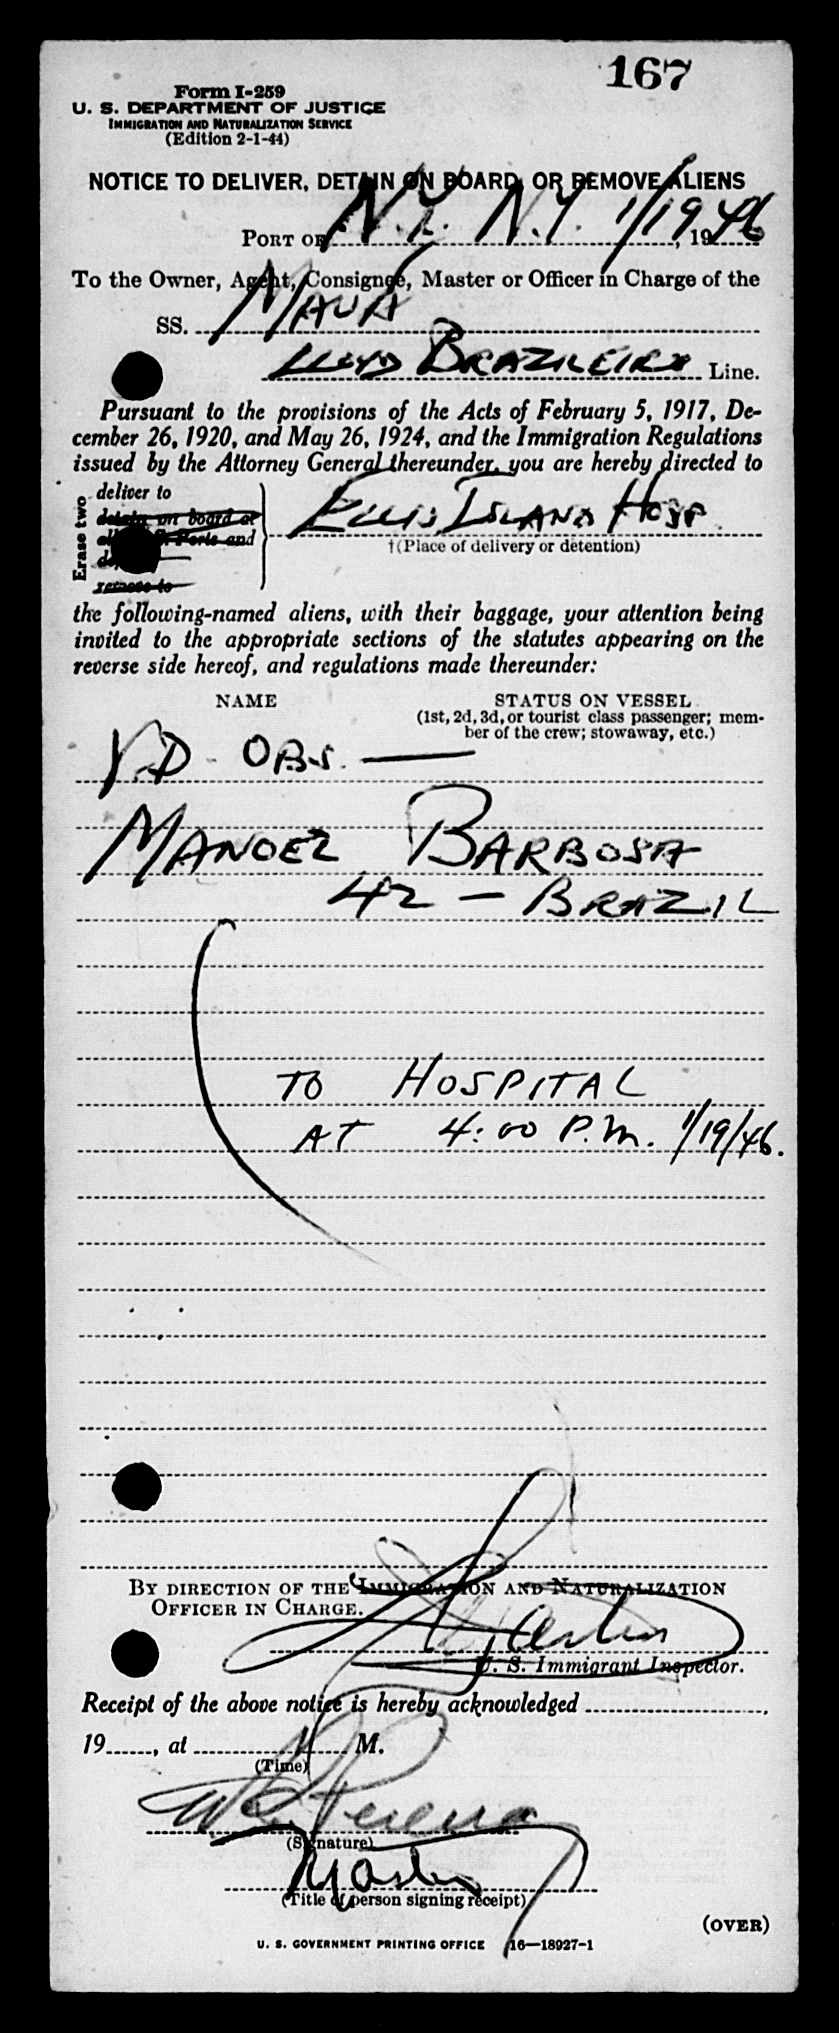 167
Form I-259
U. S. DEPARTMENT OF JUSTICE
IMMIGRATION AND NATURALIZATION SERVICE
(Edition 2-1-44)
NOTICE TO DELIVER, DETAIN ON BOARD, OR REMOVE ALIENS
PORT OF N.Y. N.Y. 1/19, 1946
To the Owner, Agent, Consignee, Master or Officer in Charge of the
SS. MAUA
LLOYD BRAZILEIRO Line.
Pursuant to the provisions of the Acts of February 5, 1917, De-
cember 26, 1920, and May 26, 1924, and the Immigration Regulations
issued by the Attorney General thereunder, you are hereby directed to
Erase two
deliver to
detain on board at
all Ports and
remove to
ELLIS ISLAND HOSP
†(Place of delivery or detention)
the following-named aliens, with their baggage, your attention being
invited to the appropriate sections of the statutes appearing on the
reverse side hereof, and regulations made thereunder:
NAME STATUS ON VESSEL
(1st, 2d, 3d, or tourist class passenger; mem-
ber of the crew; stowaway, etc.)
V.D. OBS. —
MANOEL BARBOSA
42 — BRAZIL
TO HOSPITAL
AT 4:00 P.M. 1/19/46.
BY DIRECTION OF THE IMMIGRATION AND NATURALIZATION
OFFICER IN CHARGE.
U. S. Immigrant Inspector.
Receipt of the above notice is hereby acknowledged ,
19 , at M.
(Time)
(Signature)
Master
(Title of person signing receipt)
(OVER)
U. S. GOVERNMENT PRINTING OFFICE 16—18927-1